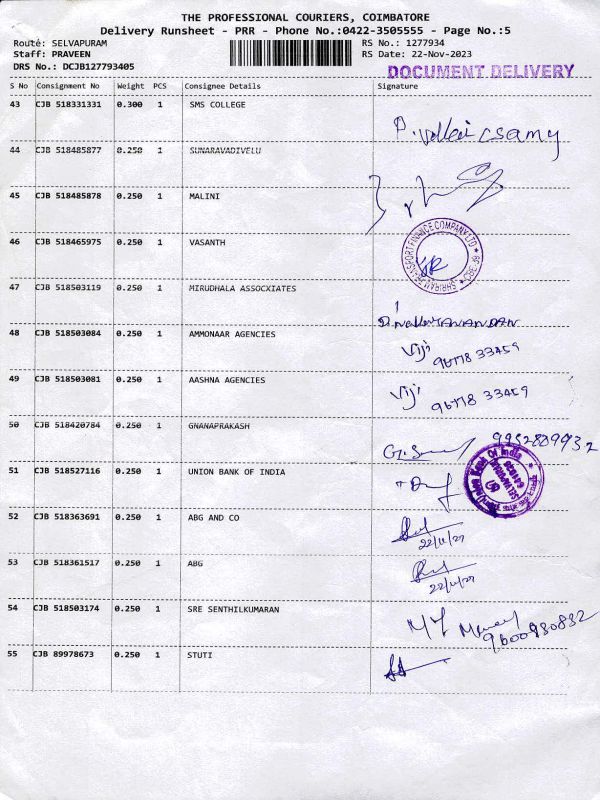 THE PROFESSIONAL COURIERS, COIMBATORE
Delivery Runsheet - PRR - Phone No.:0422-3505555 - Page No.:5
Route: SELVAPURAM
RS No.: 1277934
Staff: PRAVEEN
RS Date: 22-Nov-2023
DRS No.: DCJB127793405
DOCUMENT DELIVERY
S No Consignment No Weight PCS Consignee Details Signature
43 CJB 518331331 0.300 1 SMS COLLEGE
44 CJB 518485877 0.250 1 SUNARAVADIVELU
45 CJB 518485878 0.250 1 MALINI
46 CJB 518465975 0.250 1 VASANTH
SHRIRAM TRANSPORT FINANCE COMPANY LTD
47 CJB 518503119 0.250 1 MIRUDHALA ASSOCXIATES
48 CJB 518503084 0.250 1 AMMONAAR AGENCIES
Viji 96778 33459
49 CJB 518503081 0.250 1 AASHNA AGENCIES
Viji 96778 33459
50 CJB 518420784 0.250 1 GNANAPRAKASH
9952809932
51 CJB 518527116 0.250 1 UNION BANK OF INDIA
Union Bank Of India
52 CJB 518363691 0.250 1 ABG AND CO
22/11/23
53 CJB 518361517 0.250 1 ABG
22/11/23
54 CJB 518503174 0.250 1 SRE SENTHILKUMARAN
9600930832
55 CJB 89978673 0.250 1 STUTI